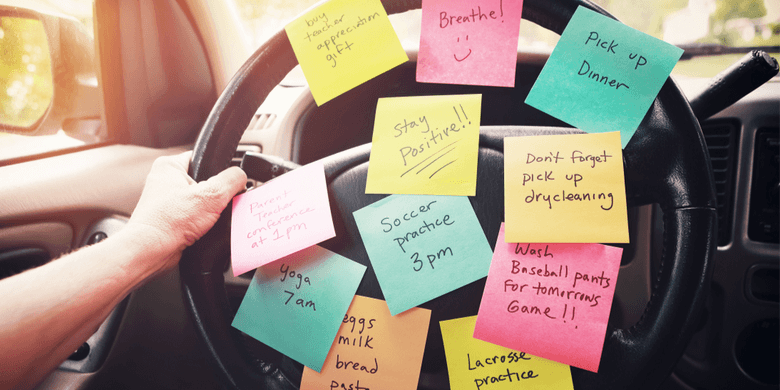 buy
teacher
appreciation
gift
Breathe!
Pick up
Dinner
Stay
Positive!!
Don't forget
pick up
drycleaning
Parent
Teacher
conference
at 1pm
Soccer
practice
3pm
Wash
Baseball pants
For tomorrows
Game!!
Yoga
7am
eggs
milk
bread
Lacrosse
practice